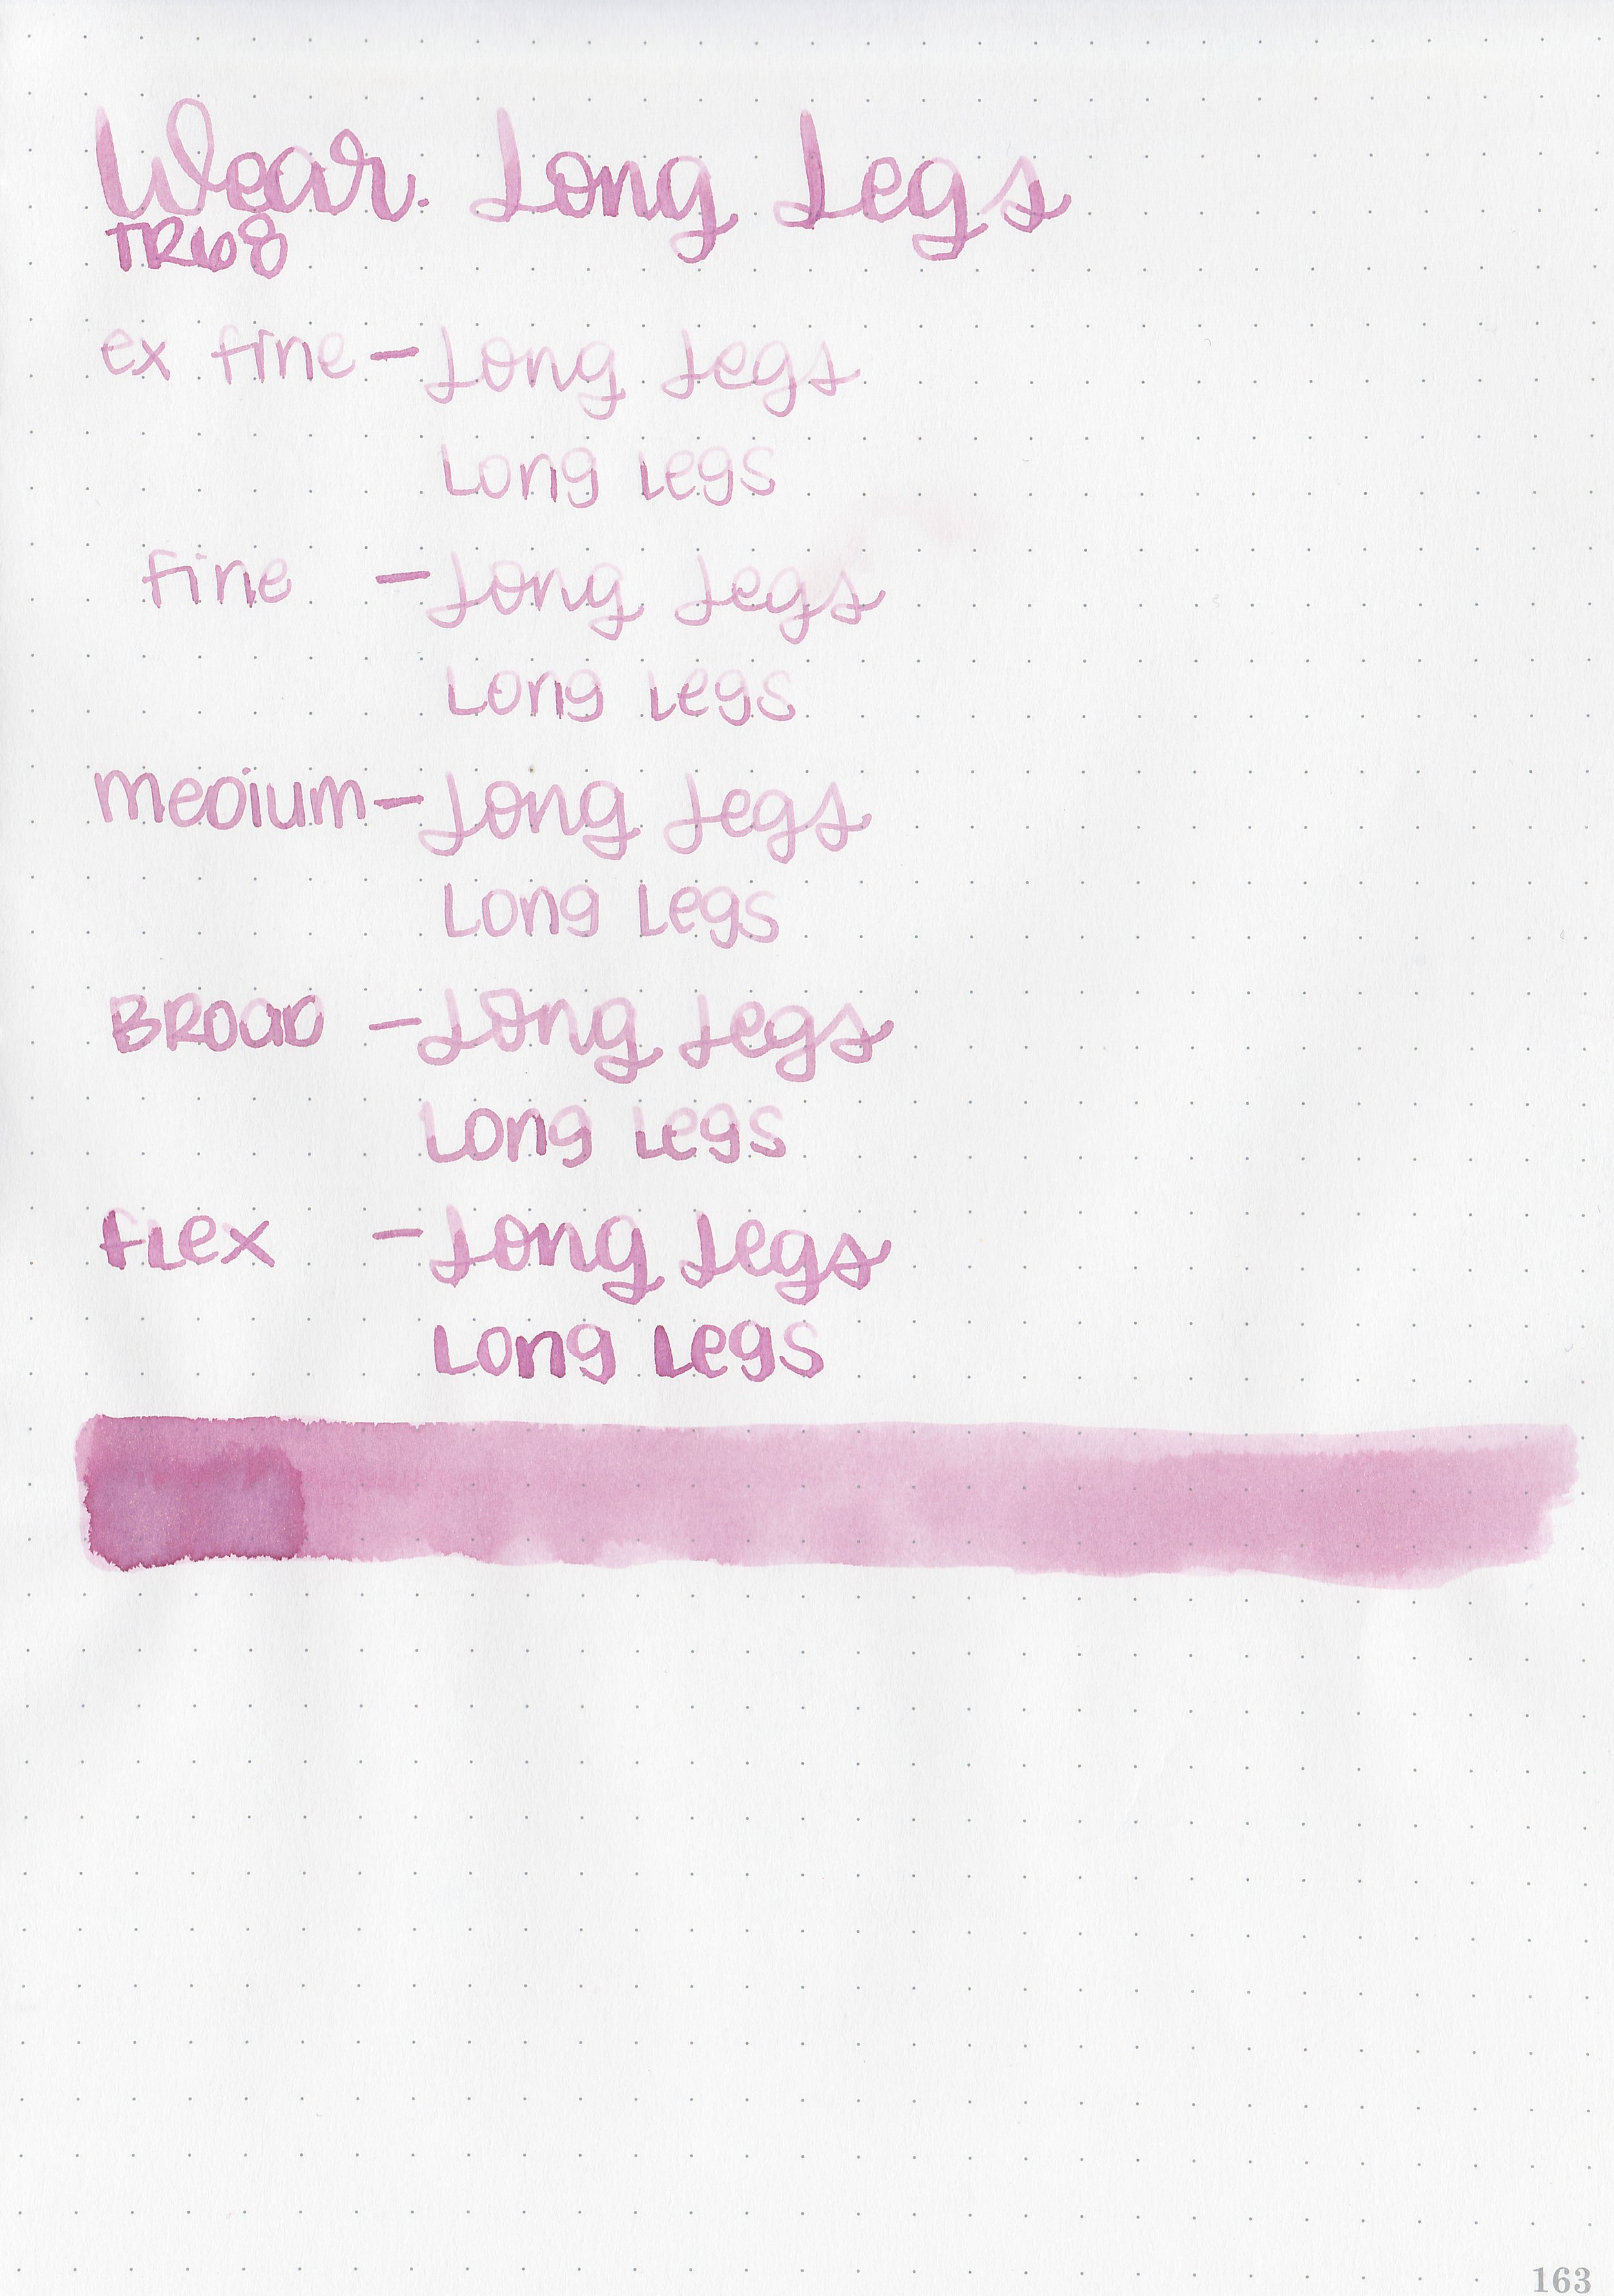 Wear. Long Legs
TR68
ex fine - Long Legs
Long Legs
fine - Long Legs
Long Legs
medium - Long Legs
Long Legs
Broad - Long Legs
Long Legs
flex - Long Legs
Long Legs
163